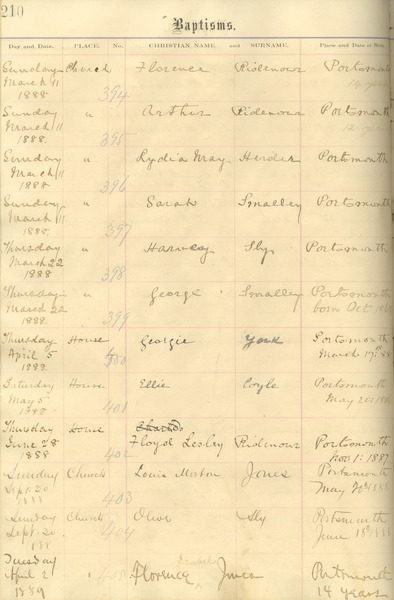 210
Baptisms.
Day and Date. PLACE. No. CHRISTIAN NAME and SURNAME. Place and Date of Birth.
Sunday Church Florence Ridenour Portsmouth
March 11
1888 394
Sunday " Arthur Ridenour Portsmouth
March 11
1888. 395
Sunday " Lydia May Herder Portsmouth
March 11
1888 396
Sunday " Sarah Smalley Portsmouth
March 11
1888. 397
Thursday " Harvey Sly Portsmouth
March 22
1888 398
Thursday " George Smalley Portsmouth
March 22 born Oct
1888. 399
Thursday House Georgie York Portsmouth
April 5 March 17th
1888
Saturday House Ellie Coyle Portsmouth
May 5 May 20
1888 401
Thursday House
June 28 Floyd Lesley Ridenour Portsmouth
1888 402 Nov 1: 1887
Sunday Church Louis Morton Jones Portsmouth
Sept. 30 May
1888 403
Sunday Church Olive Sly Portsmouth
Sept. 30 June 18th
188 404
Tuesday
April 2 " 405 Florence Portsmouth
1889 14 years